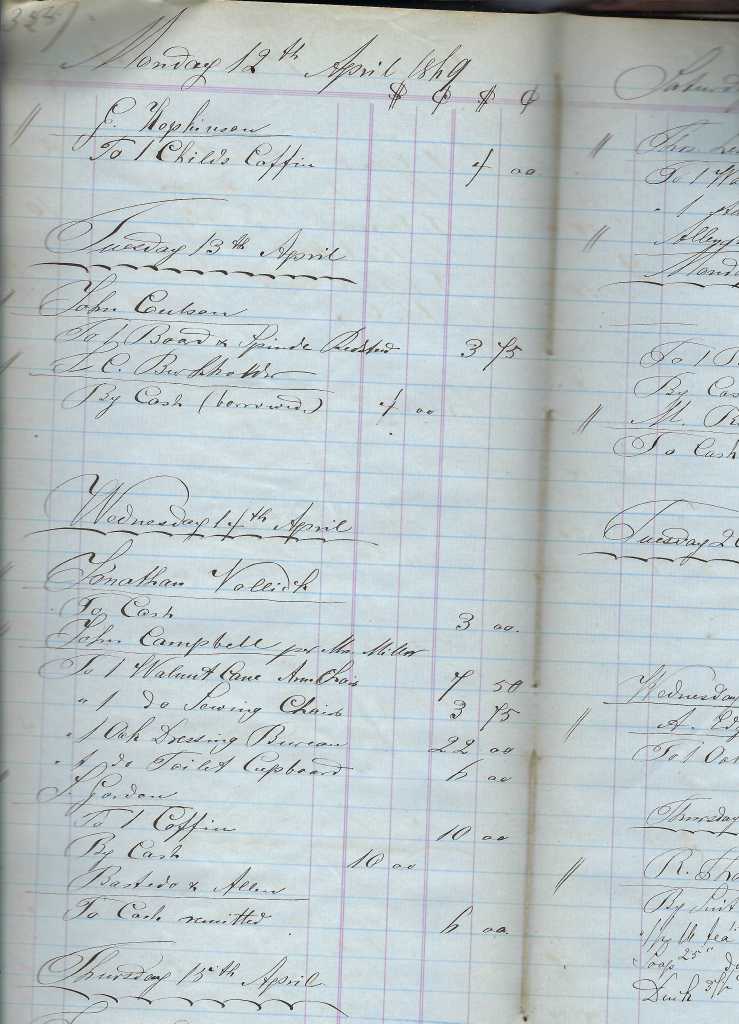 Monday 12th April 1869
$ ¢ $ ¢
" J. Hopkinson
To 1 Childs Coffin 4 00
Tuesday 13th April
John Coulson
To 1 Board & Spindle Bedsted 3 75
By Cash (borrowed) 4 00
Wednesday 14th April
Jonathan Vollick
To Cash 3 00.
John Campbell per Mr. Miller
To 1 Walnut Cane Arm Chair 7 50
" 1 do Sewing Chair 3 75
" 1 Oak Dressing Bureau 22 00
" 1 do Toilet Cupboard 6 00
S. Gordon
To 1 Coffin 10 00
By Cash 10 00
Bastedo & Allen
To Cash remitted 6 00.
Thursday 15th April
Saturd
" Thos.
To 1 Wa
" 1
"
Mond
To 1
By Cas
" M.
To Cash
Tuesday 20
Wednesday
" A. Ed
To 1 Oak
Thursday
" R. Tho
By
tea
Soap 25
Duck